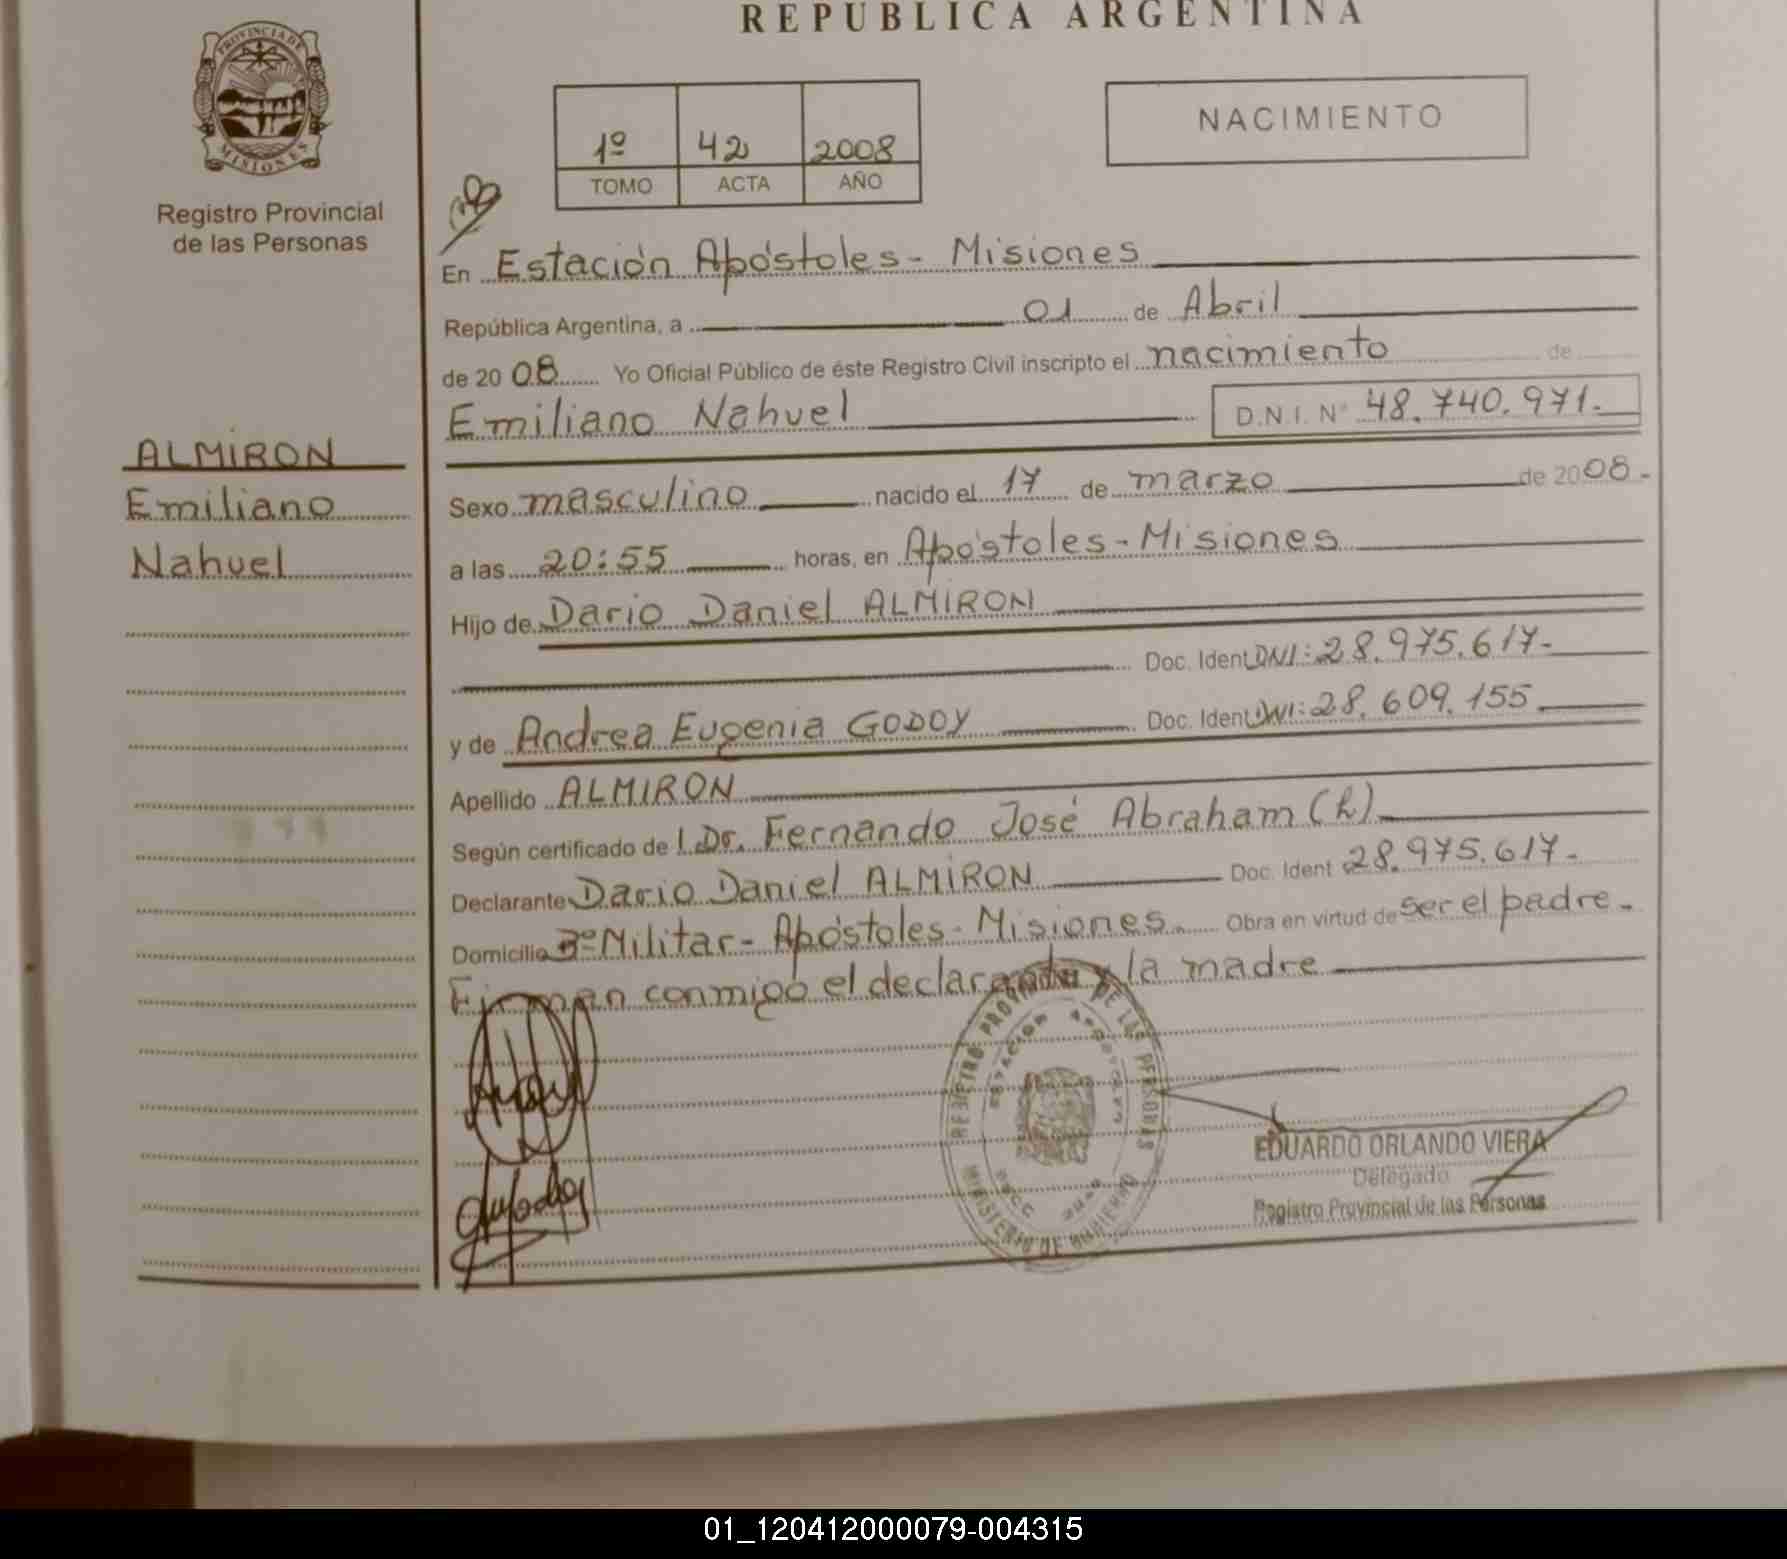 REPUBLICA ARGENTINA
PROVINCIA DE
MISIONES
Registro Provincial
de las Personas
1º 42 2008
TOMO ACTA AÑO
NACIMIENTO
En Estación Apóstoles - Misiones
República Argentina, a 01 de Abril
de 20 08 Yo Oficial Público de éste Registro Civil inscripto el nacimiento de
Emiliano Nahuel D.N.I. Nº 48.740.971.-
ALMIRON
Emiliano
Nahuel
Sexo masculino nacido el 17 de marzo de 2008.-
a las 20:55 horas, en Apóstoles - Misiones
Hijo de Dario Daniel ALMIRON
Doc. Ident DNI: 28.975.617-
y de Andrea Eugenia GODOY Doc. Ident DNI: 28.609.155
Apellido ALMIRON
Según certificado de l Dr. Fernando José Abraham (h)
Declarante Dario Daniel ALMIRON Doc. Ident 28.975.617-
Domicilio Bº Militar - Apóstoles - Misiones. Obra en virtud de ser el padre.-
Firman conmigo el declarante y la madre
REGISTRO PROVINCIAL DE LAS PERSONAS
ESTACION APOSTOLES
MINISTERIO DE GOBIERNO
EDUARDO ORLANDO VIERA
Delegado
Registro Provincial de las Personas
01_120412000079-004315